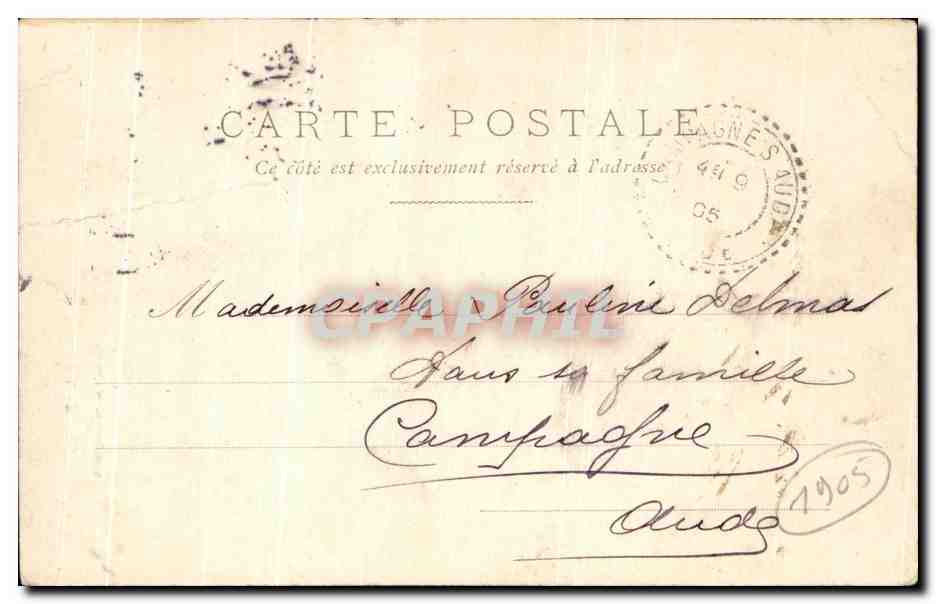 CARTE POSTALE
Ce côté est exclusivement réservé à l'adresse
AGNE S AUDE
9
05
Mademoiselle Pauline Delmas
CPAPHIL
dans sa famille
Campagne
Aude
1905